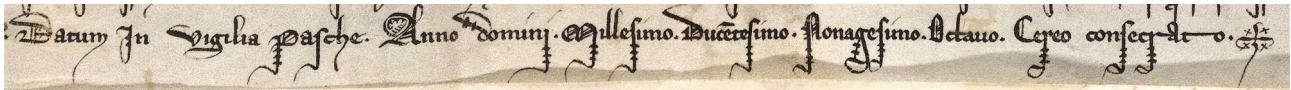 Datum In Vigilia Pasche. Anno domini. Millesimo. Ducētesimo. Nonagesimo. Octauo. Cereo consecrato.